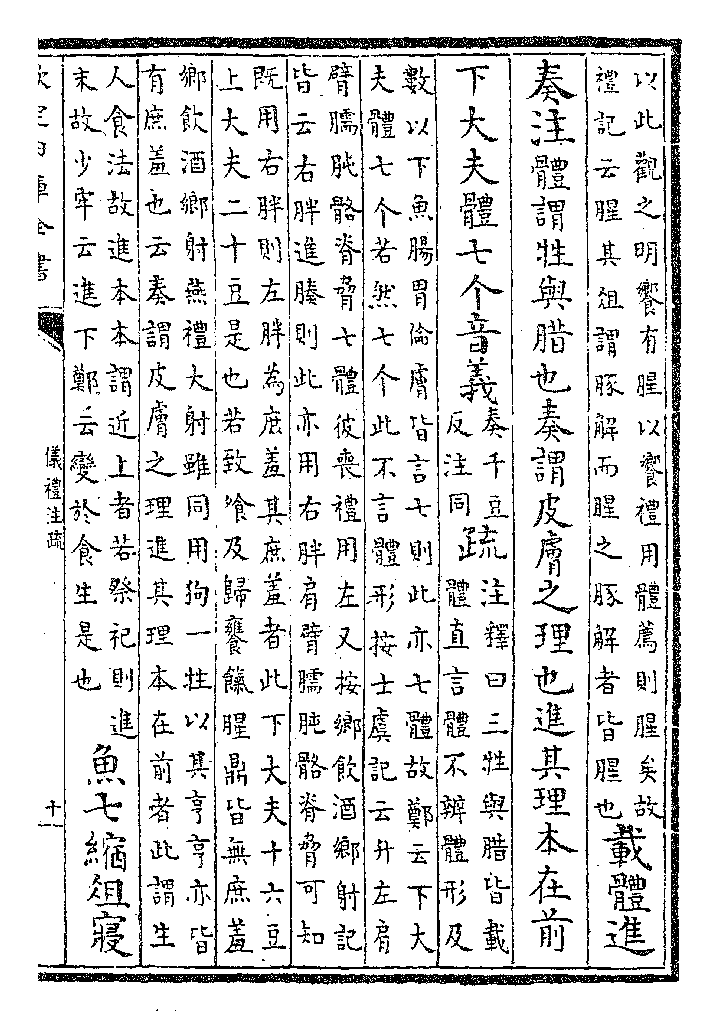 以此觀之明饗有腥以饗禮用體薦則腥矣故
禮記云腥其俎謂豚解而腥之豚解者皆腥也
載體進
奏注體謂牲與腊也奏謂皮膚之理也進其理本在前
下大夫體七个音義
奏千豆
反注同
疏
注釋曰三牲與腊皆載
體直言體不辨體形及
數以下魚腸胃倫膚皆言七則此亦七體故鄭云下大
夫體七个若然七个此不言體形按士虞記云升左肩
臂臑肫骼脊脅七體彼喪禮用左又按鄉飲酒鄉射記
皆云右胖進腠則此亦用右胖肩臂臑肫骼脊脅可知
既用右胖則左胖為庶羞其庶羞者此下大夫十六豆
上大夫二十豆是也若致飧及歸饔餼腥鼎皆無庶羞
鄉飲酒鄉射燕禮大射雖同用狗一牲以其亨亨亦皆
有庶羞也云奏謂皮膚之理進其理本在前者此謂生
人食法故進本本謂近上者若祭祀則進
末故少牢云進下鄭云變於食生是也
魚七縮俎寢
儀禮注疏
十一